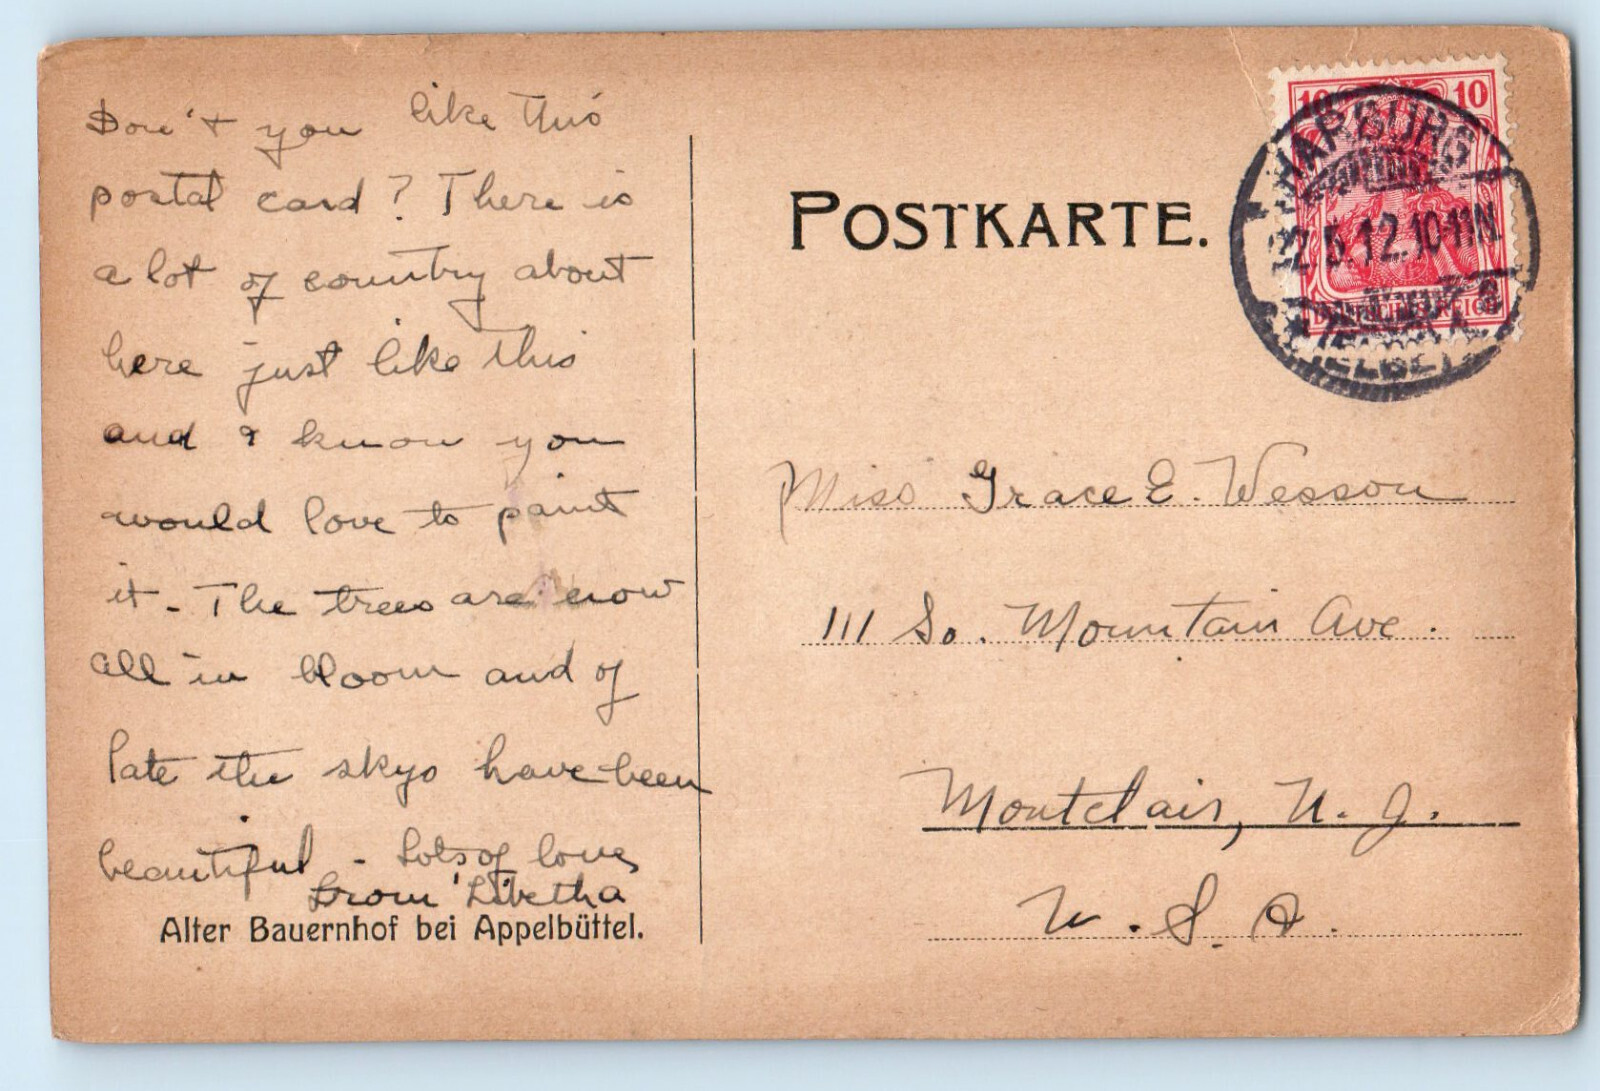 Don't you like this
postal card? There is
a lot of country about
here just like this
and I know you
would love to paint
it - The trees are now
all in bloom and of
late the skys have been
beautiful - Lots of love,
from Libetha
Alter Bauernhof bei Appelbüttel.
POSTKARTE.
10 10
HARBURG
2.5.12.10-11N.
DEUTSCHES REICH
(ELBE)
Miss Grace E. Wesson
111 So. Mountain Ave.
Montclair, N. J.
U. S. A.